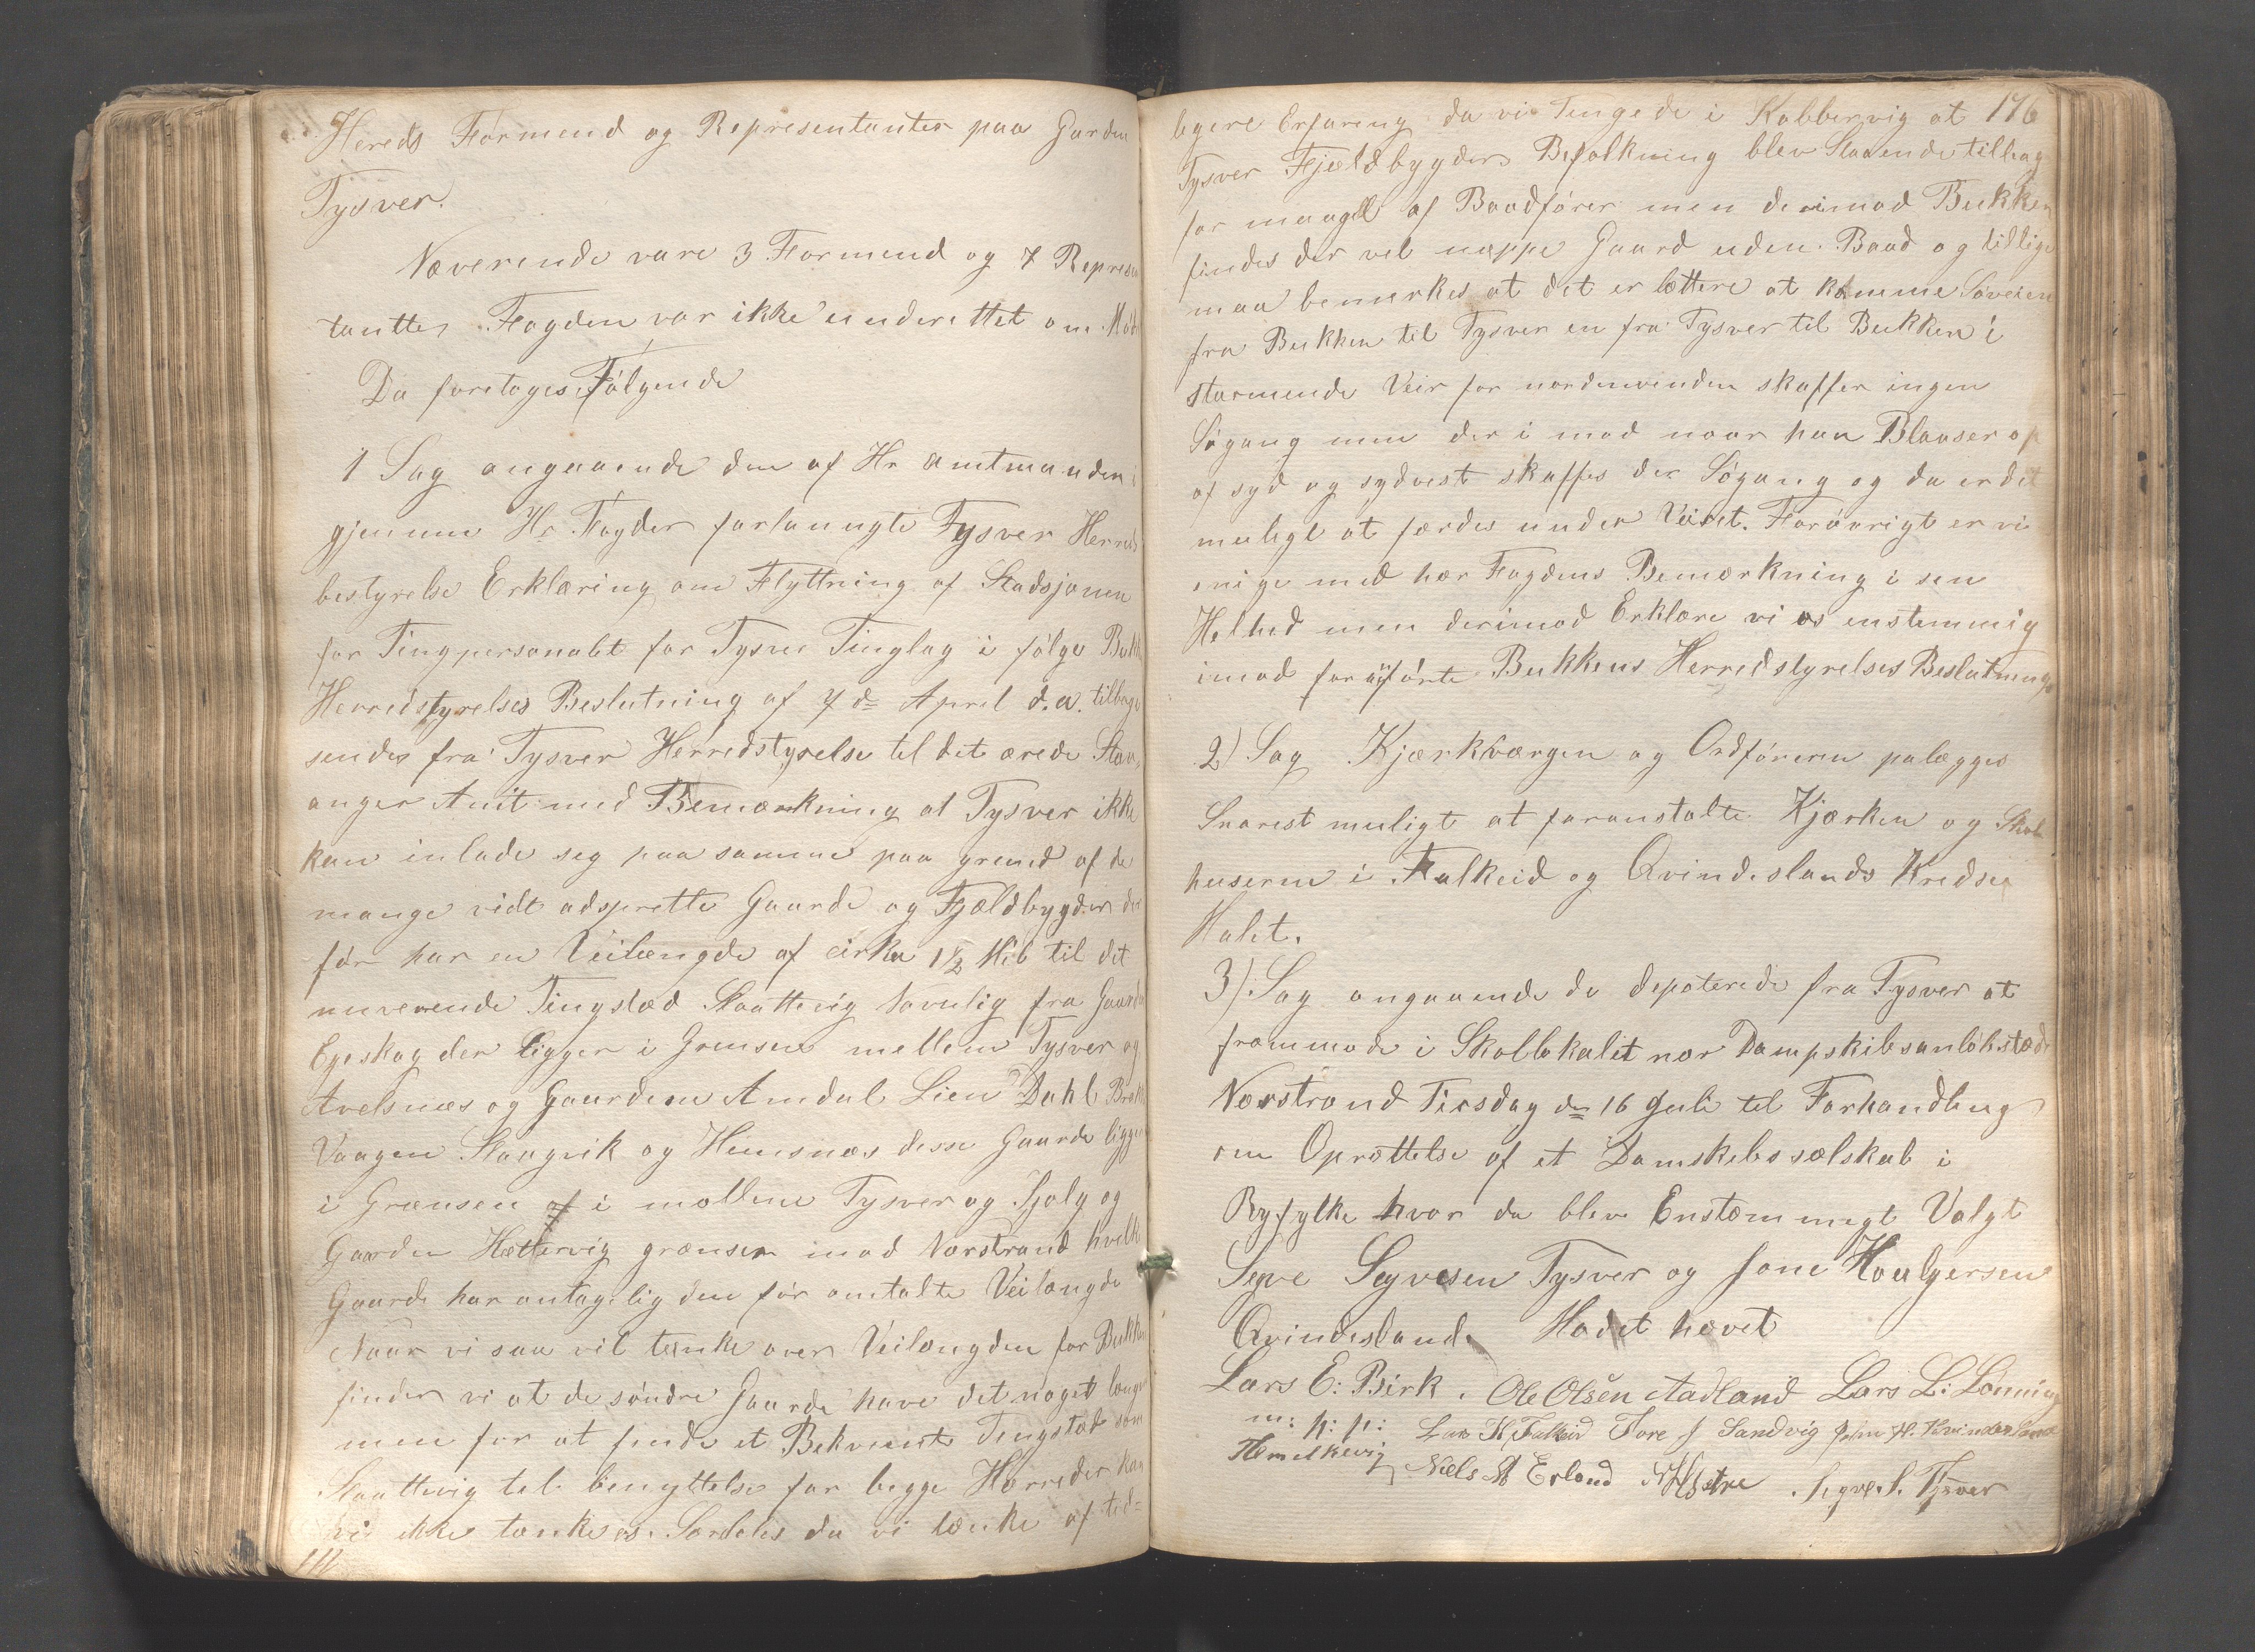 Hereds Formend og Representanter paa Garden
Tysver.
Nœverende vare 3 Formend og 7 Represen
tantter Fogden var ikke underettet om Mød
Da foretoges Følgende
1 Sag angaaende den af Hr amtmanden i
gjennem Hr Fogden forlanngte Tysver Herreds
bestyrelse Erklæring om Flyttning af Stadsjonen
for Tingpersonalet for Tysver Tinglag i følge Bukk
Herredstyrelses Beslutning af 7 de April d.a. tilbage
sendes fra Tysver Herredstyrelse til det ærede Stav
anger Amt med Bemærkning at Tysver ikke
kan inlade seg paa samme paa grund af de
mange vidt adsprette Gaarde og Fjældbygder der
før har en Veilængde af cirka 1½ Mil til det
nuverende Tingstæd Slaattevig Navnlig fra Gaarden
Egeskog der ligger i Grænsen mellem Tysver og
Avelsnæs og Gaardene Amdal Lien Dahl Brek
Vaagen Slaagvik og Himsnæs desse Gaarde ligger
i Grænsen af i mellem Tysver og Sjoly og
Gaarden Hættervig grænser mod Nærstrand hvilke
Gaarde har antagelig den før omtalte Veilængde
Naar vi saa vil tenke over Veilængden for Bukken
finder vi at de søndre Gaarde have det noget længer
men for at finde et Bekvemt Tingstæd som
Slaattevig til benyttelse for begge Herreder kan
vi ikke tænke os. Særdeles da vi tænke af tid=
176
ligere Erfaring da vi Tingede i Kobbervig at
Tysver Fjældbygders Befolkning blev Staaende tilbag
for maagel af Baadfører men derimod Bukken
findes der vel neppe Gaard uden Baad og tillige
maa bemerkes at det er lættere at komme Søveien
fra Bukken til Tysver en fra Tysver til Bukken i
stormende Veir for nordenvinden skaffer ingen
Søgang men der i mod naar han Blaaser op
af syd og sydvest skaffes der Søgang og da er det
muligt at færdes under Veiret. Forøvrigt er vi
enige med hær Fogdens Bemærkning i sen
Helhed men derimod Erklære vi os enstemmig
imod foranførte Bukkens Herredstyrelses Beslutning
2) Sag Kjærkværgen og Ordføreren palægges
Snarest muligt at foranstalte Kjærken og Skole
huserne i Falkeid og Qvindeslands Kredse
Malet.
3) Sag angaaende de depoterede fra Tysver at
frammøde i Skollokalet nær Dampskibsanløbstæde
Nærstrand Tirsdag den 16 Juli til Forhandling
om Oprættelse af et Damskibssælskab i
Ryfylke hvor da blev Enstæmmigt Valgt
Segve Segvesen Tysver og Jone Haalgersen
Qvindesland. Modet hævet
Lars E: Birk. Ole Olsen Aadland Lars L: Lønning
m: p: p: Lars H Falkeid Tore J Sandvig John H. Kvindesland
Hemelkevig Niels M Erland Segve. S. Tysver